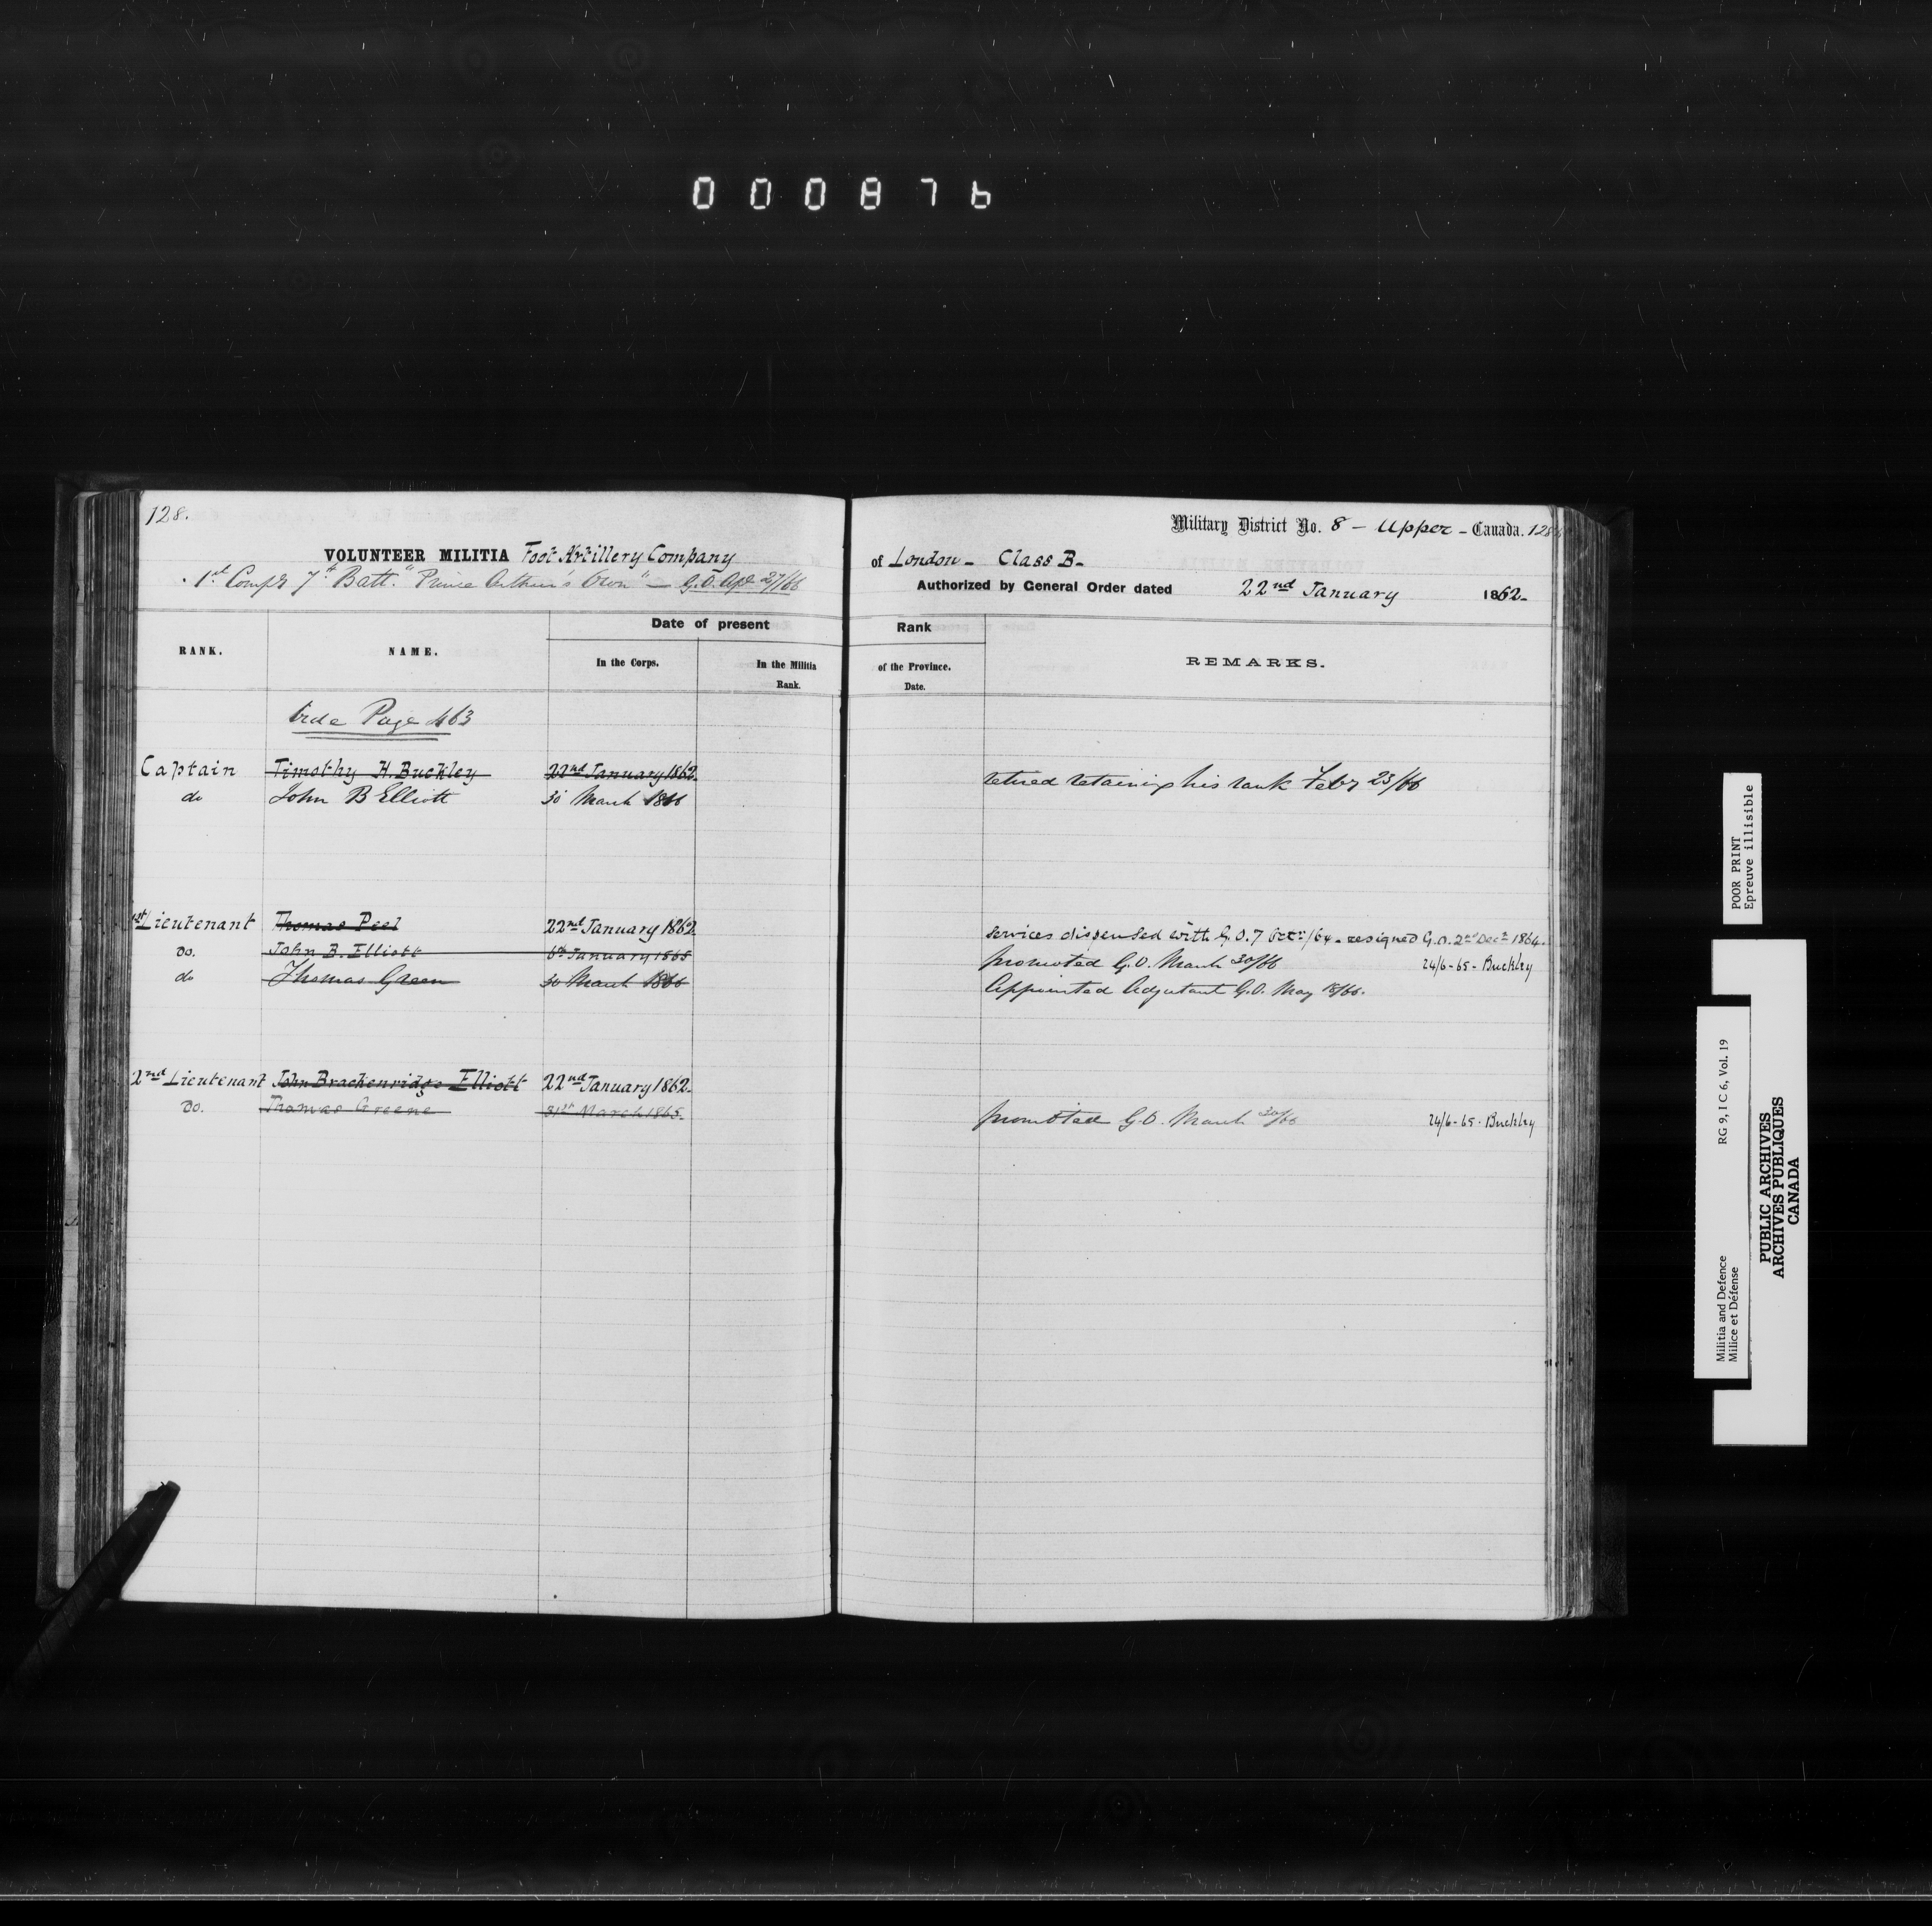 000876
128.
VOLUNTEER MILITIA Foot Artillery Company
1st Compy 7th Batt. "Prince Arthur's Own" — G.O. Apl 27/66
RANK.
NAME.
Date of present
In the Corps.
In the Militia
Rank.
Vide Page 463
Captain Timothy H. Buckley 22nd January 1862.
do John B Elliott 30 March 1866
1st Lieutenant Thomas Peel 22nd January 1862
Do. John B. Elliott 6th January 1865
do Thomas Green 30 March 1866
2nd Lieutenant John Brackenridge Elliott 22nd January 1862.
Do. Thomas Greene 31st March 1865.
Military District No. 8 — Upper — Canada. 128
of London — Class B —
Authorized by General Order dated 22nd January 1862 —
Rank
of the Province.
Date.
REMARKS.
retired retaining his rank Feby 23/66
services dispensed with G.O. 7 Octr/64 — resigned G.O. 2nd Decr 1864.
promoted G.O. March 30/66 24/6 - 65 - Buckley
Appointed Adjutant G.O. May 18/66.
promoted G.O. March 30/66 24/6 - 65 - Buckley
POOR PRINT
Epreuve illisible
RG 9, I C 6, Vol. 19
Militia and Defence
Milice et Défense
PUBLIC ARCHIVES
ARCHIVES PUBLIQUES
CANADA